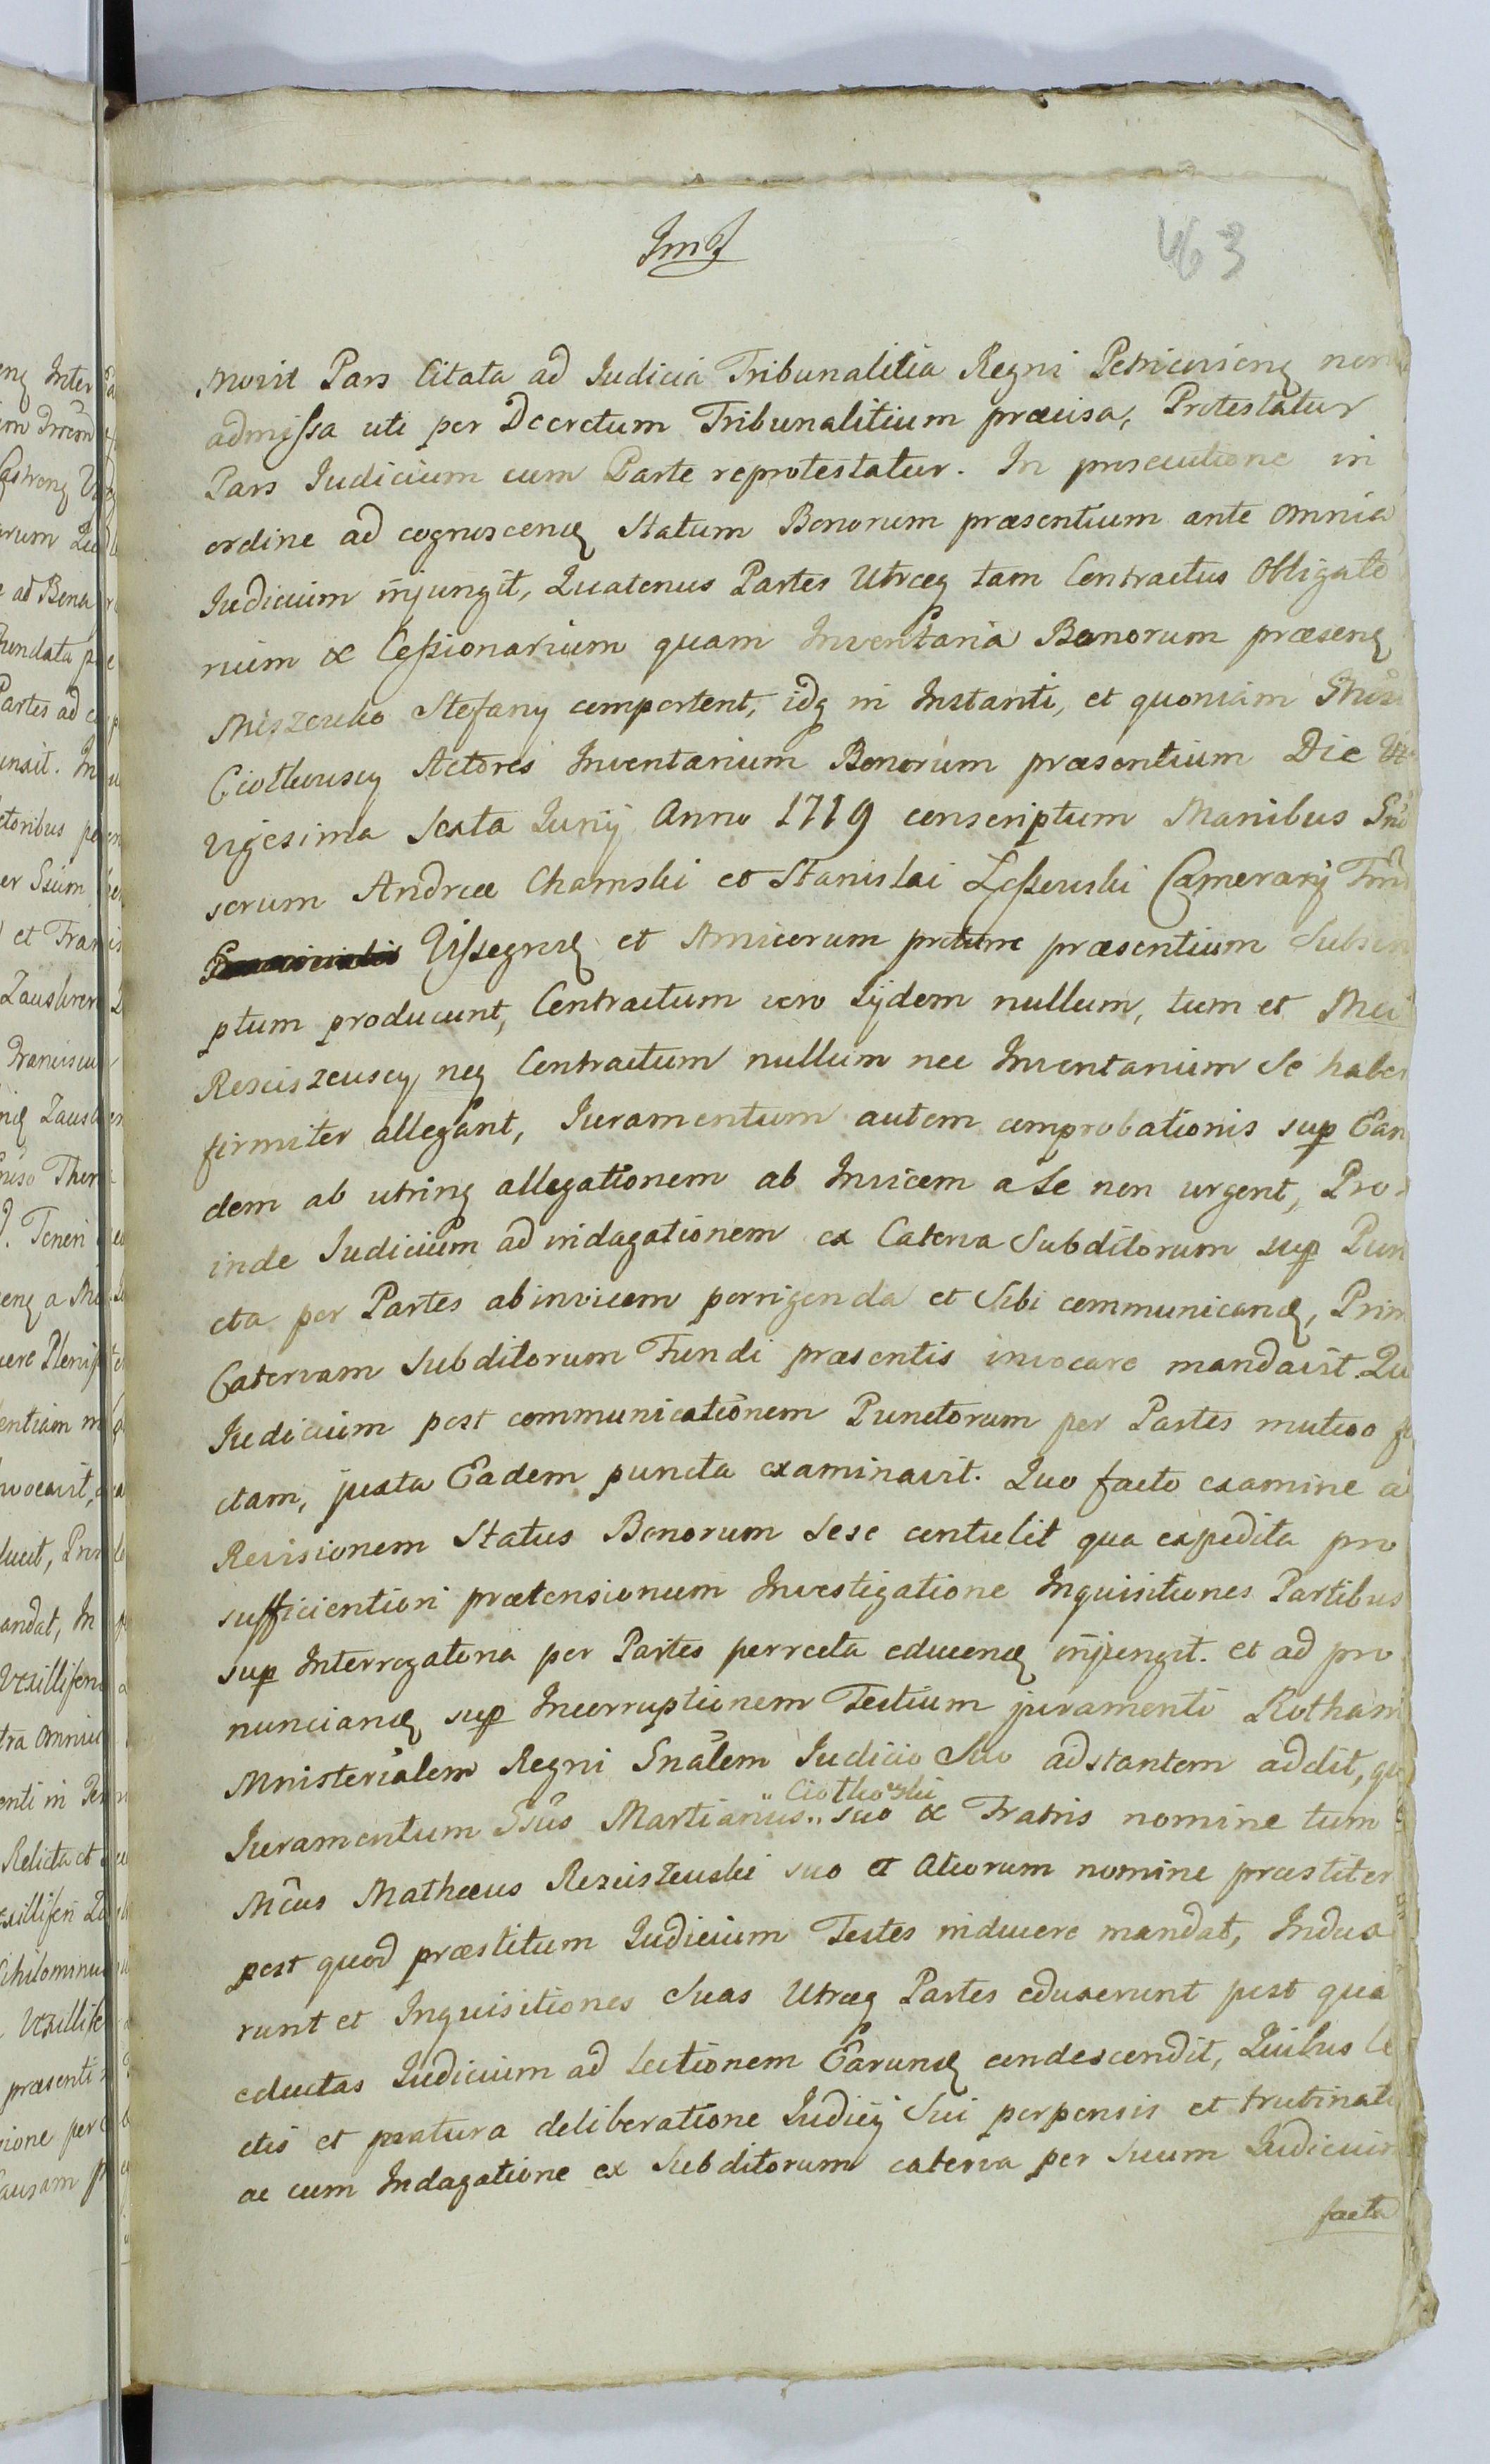 463
movit Pars Citata ad Iudicia Tribunalitia Regni Petricovienꝫ non
admissa uti per Decretum Tribunalitium præcisa, Protestatur
Pars Iudicium cum Parte reprotestatur. In prosecutione in
ordine ad cognoscenꝫ Statum Bonorum præsentium ante omnia
Iudicium injungit, Quatenus Partes Utræqꝫ tam Contractus Obligato
rium & Cessionarium quam Inventaria Bonorum præsenꝫ
Miszewko Stefany comportent, idqꝫ in Instanti, et quoniam
Ciotkouscy Actores Inventarium Bonorum præsentium Die
vigesima Sexta Junij Anno 1719 conscriptum Manibus
sorum Andreæ Chamski et Stanislai Lessewski Camerarij
Vissegrodꝫ et Amicorum præsentium Subscri
ptum producunt, Contractum vero Iijdem nullum, tum et
Resciszeuscy neqꝫ Contractum nullum nec Inventarium Se haber
firmiter allegant, Iuramentum autem comprobationis sup Ean
dem ab utrinqꝫ allegationem ab Invicem a Se non urgent, Pro
inde Iudicium ad indagationem ex Caterva Subditorum sup Pun
cta per Partes abinvicem porrigenda et Sibi communicanꝫ,
Catervam Subditorum Fundi præsentis invocare mandavit.
Iudicium post communicationem Punctorum per Partes mutuo
ctam, juxta Eadem puncta examinavit. Quo facto examine a
Revisionem Status Bonorum sese contulit qua expedita pro
sufficientiori prætensionum Investigatione Inquisitiones Partibus
sup Interrogatoria per Partes porrecta educenꝫ injungit. et ad pro
nuncianꝫ sup Incorruptionem Testium juramenti Rotham
Mnisterialem Regni Gnālem Iudicio Suo adstantem addit,
Ciotkowski
Iuramentum Gsūs Martianus suo & Fratris nomine tum
Mcūs Mathæus Resciszeuski suo et aliorum nomine præstiter
post quod præstitum Iudicium Testes inducere mandat, Induxe
runt et Inquisitiones Suas Utræqꝫ Partes eduxerunt post quas
eductas Iudicium ad Lectionem Earunꝫ condescendit, Quibus le
ctis et matura deliberatione Iudicij Sui perpensis et trutinati
ac cum Indagatione ex Subditorum caterva per Suum Iudicium
facta